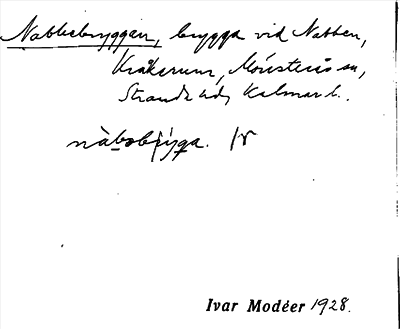 Nabbebryggan, brygga vid Nabben,
Kråkerum, Mönsterås sn,
Strands hd, Kalmar l.
nàbəbry̩ga. Ir
Ivar Modéer 1928.